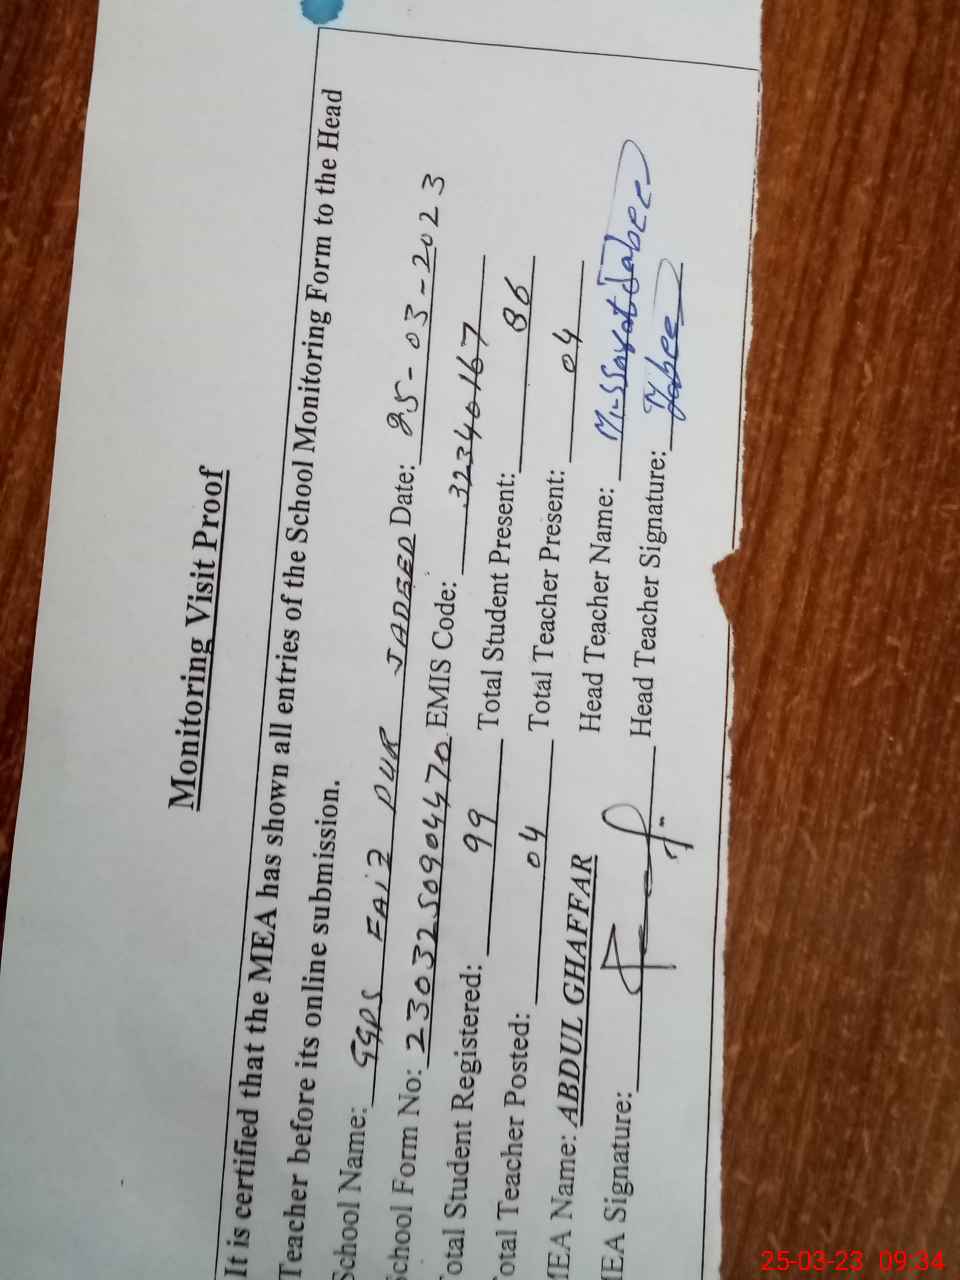 Monitoring Visit Proof
It is certified that the MEA has shown all entries of the School Monitoring Form to the Head
Teacher before its online submission.
School Name: GGPS FAIZ PUR JADEED Date: 25-03-2023
School Form No: 2303250904470 EMIS Code: 32340167
Total Student Registered: 99 Total Student Present: 86
Total Teacher Posted: 04 Total Teacher Present: 04
MEA Name: ABDUL GHAFFAR Head Teacher Name: Mussarat
MEA Signature: Head Teacher Signature:
25-03-23 09:34